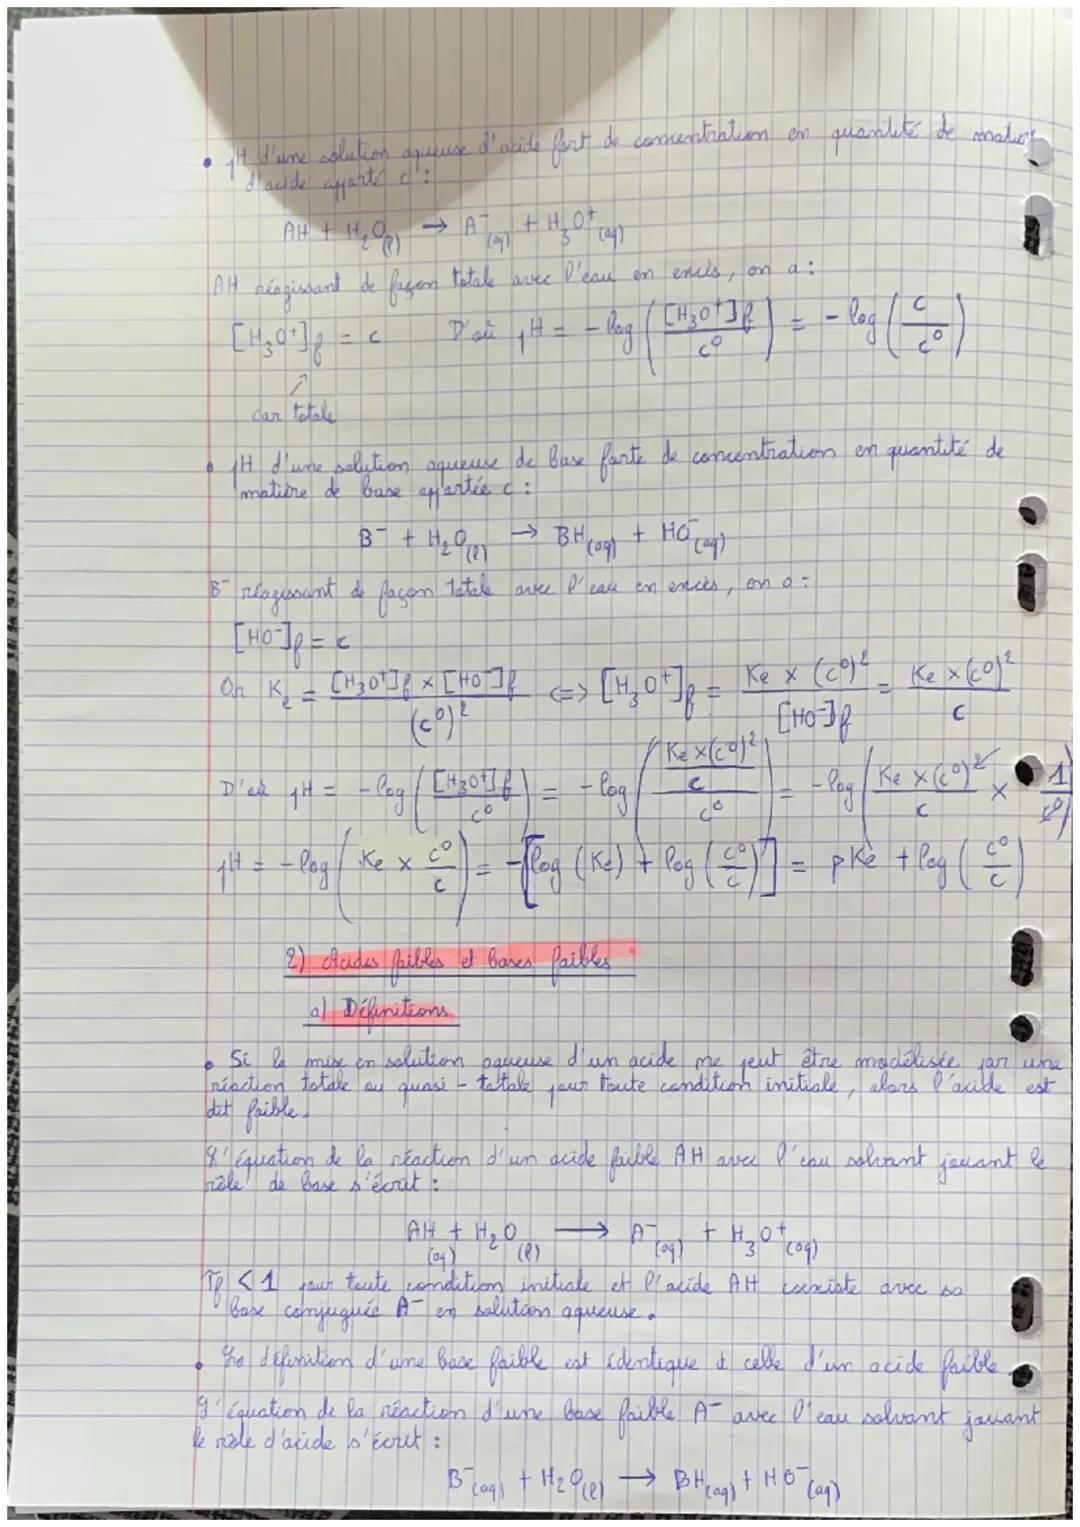 • pH d'une solution aqueuse d'acide fort de concentration en quantité de matière
d'acide apporté c :
AH + H₂O(l) → A⁻(aq) + H₃O⁺(aq)
AH réagissant de façon totale avec l'eau en excès, on a :
[H₃O⁺]f = c D'où pH = - log ([H₃O⁺]f / c⁰) = - log (c / c⁰)
↗
car totale
• pH d'une solution aqueuse de base forte de concentration en quantité de
matière de base apportée c :
B⁻ + H₂O(l) → BH(aq) + HO⁻(aq)
B⁻ réagissant de façon totale avec l'eau en excès, on a :
[HO⁻]f = c
Or Ke = [H₃O⁺]f × [HO⁻]f / (c⁰)² <=> [H₃O⁺]f = Ke × (c⁰)² / [HO⁻]f = Ke × (c⁰)² / c
D'où pH = - log ([H₃O⁺]f / c⁰) = - log ((Ke × (c⁰)² / c) / c⁰) = - log (Ke × (c⁰)² / c × 1 / c⁰)
pH = - log (Ke × c⁰ / c) = -[log (Ke) + log (c⁰ / c)] = pKe + log (c⁰ / c)
2) Acides faibles et bases faibles
a) Définitions
• Si la mise en solution aqueuse d'un acide ne peut être modélisée par une
réaction totale ou quasi-totale pour toute condition initiale, alors l'acide est
dit faible.
L'équation de la réaction d'un acide faible AH avec l'eau solvant jouant le
rôle de base s'écrit :
AH(aq) + H₂O(l) → A⁻(aq) + H₃O⁺(aq)
τf < 1 pour toute condition initiale et l'acide AH coexiste avec sa
base conjuguée A⁻ en solution aqueuse.
• La définition d'une base faible est identique à celle d'un acide faible.
L'équation de la réaction d'une base faible A⁻ avec l'eau solvant jouant
le rôle d'acide s'écrit :
B⁻(aq) + H₂O(l) → BH(aq) + HO⁻(aq)